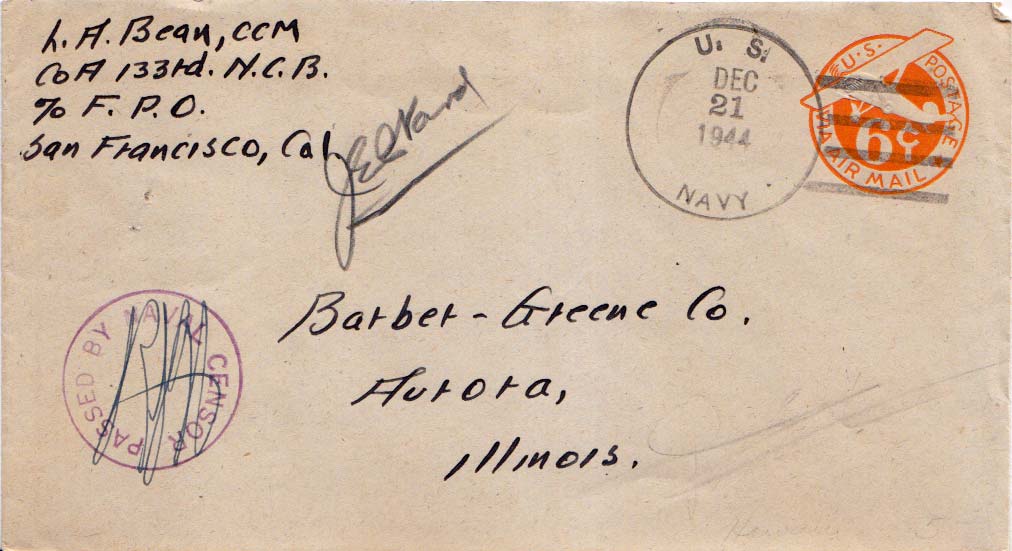 L. A. Bean, CCM
Co A 133rd. N.C.B.
% F. P. O.
San Francisco, Cal
U. S.
DEC
21
1944
NAVY
U.S. POSTAGE
6¢
VIA AIR MAIL
PASSED BY NAVAL CENSOR
Barber-Greene Co.
Aurora,
Illinois.